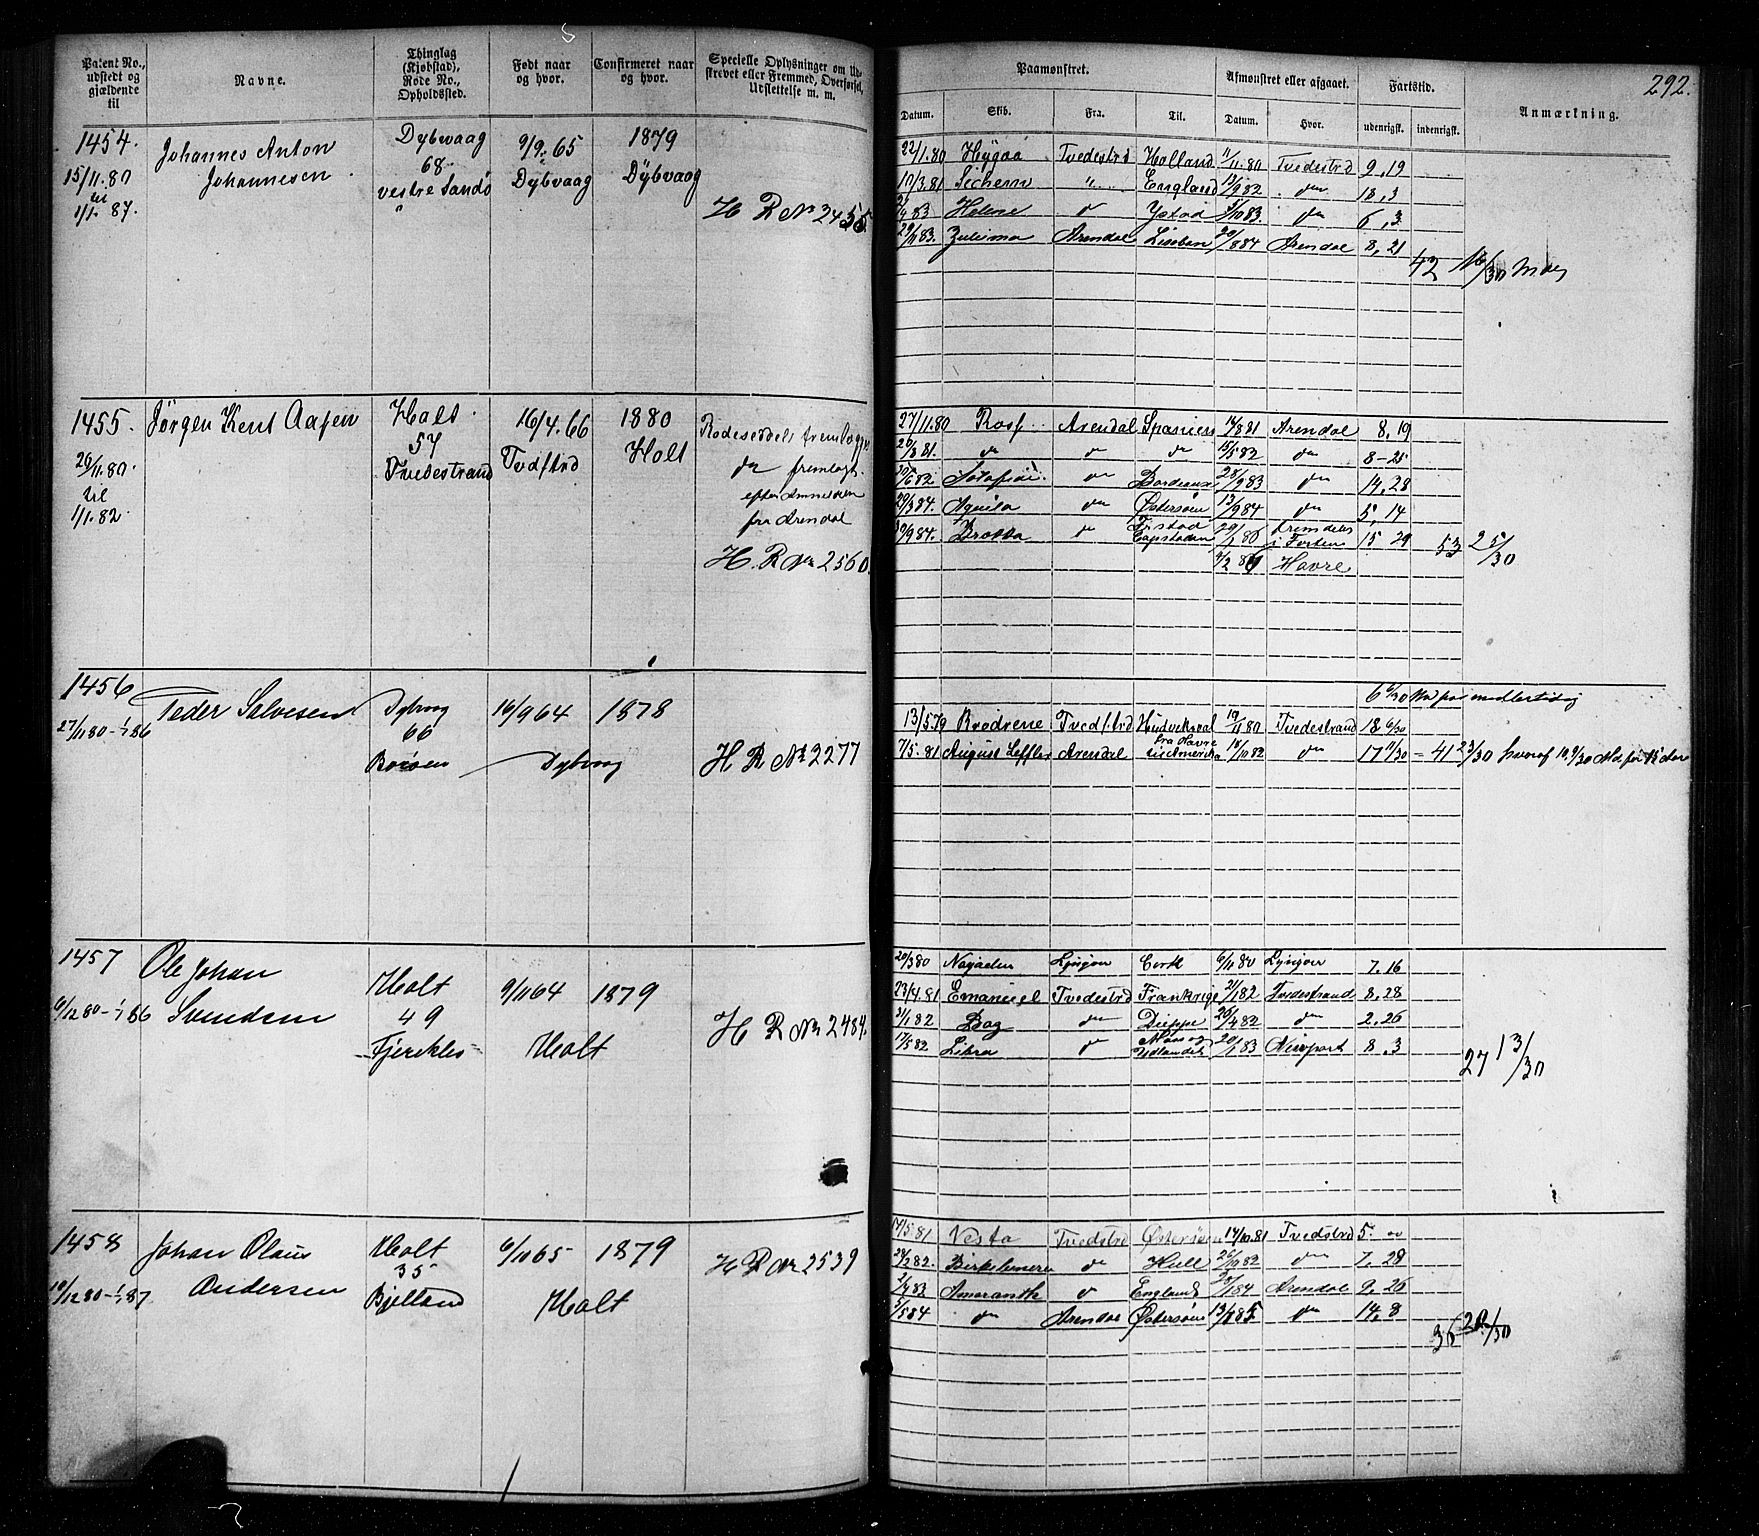 292.
Patent No., udstedt og gjældende til
Navne.
Thinglag (Kjøbstad), Rode No., Opholdssted.
Født naar og hvor.
Confirmeret naar og hvor.
Specielle Oplysninger om Udskrevet eller Fremmed, Overførsel, Udslettelse m. m.
Paamønstret.
Afmønstret eller afgaaet.
Fartstid.
Anmærkning.
Datum.
Skib.
Fra.
Til.
Datum.
Hvor.
udenrigsk.
indenrigsk.
1454.
15/11.80
til
1/1. 87.
Johannes Anton
Johannesen
Dybvaag
68
vestre Sandø
9/9. 65
Dybvaag
1879
Dybvaag
H R No 2455.
22/1.80 Hygæa Tvedestrd Holland 11/11.80 Tvedestrd 9,19
17/3.81 Sichem " England 13/9 82 do 18,3
83 Helene do Ystad 83 do 6,3
29/11 83. Zuleima Arendal Lissabon 20/8 84 Arendal 8,21
42 16/30 Mdr
1455.
26/11.80
til
1/1. 82.
Jørgen Kent Aasen
Holt
57
Tvedestrand
16/4.66
Tvedstrd
1880
Holt
Rodeseddel
do fremlagt
efter Anmeldelse
fra Arendal
H. R No 2560.
27/11.80 Rosp Arendal Spanien 14/8 81 Arendal 8,19
26/8 81. do do do 15/5 82 do 8-25
do Bordeaux 28/9 83 do 14,28
29/3 84. Aquila do Østersøen 13/9 84 do 5,14
30/9 84. Drotta do Capstaden 15 29
Havre
53 25/30
1456
27/11 80-1/1 86
Peder Salvesen
Dybvag
66
Borøen
16/9 64
Dybvag
1878
H R No 2277
13/5 79 Brødrene Tvedstrd Hudviksval 19/11 80 Tvedestrand 18 6/30
7/5. 81 August Leffler Arendal fra Havre til Amerika 18/10 82 do 17 17/30 - 41 23/30
1457
6/12 80-1/1 86
Ole Johan
Svendsen
Holt
49
Fjerekles
9/11 64
Holt
1879
H R No 2484.
20/3 80 Najaden Lyngør Cork 6/11 80 Lyngør 7.16
23/4.81 Emanuel Tvedestrd Frankrige 21/1 82 Tvedestrand 8,28
31/1 82 Dag do Dieppe 26/4 82 do 2,26
17/5 82 Libra do Moss og Udlandet 20/1 83 Newport 8,3
27 13/30
1458
10/12 80-1/1 87
Johan Olaus
Andersen
Holt
35
Bjelland
6/10 65
Holt
1879
H R No 2539
17/5 81 Vesta Tvedstrd Østersøen 17/10.81 Tvedstrd 5. 00
28/2 82. do Hull 26/10 82 do 7,28
2/4 83 Amaranth do England 28/1 84 Arendal 9,26
5/5 84 do Arendal Østersøen 13/7 85 do 14,8
36 20/30